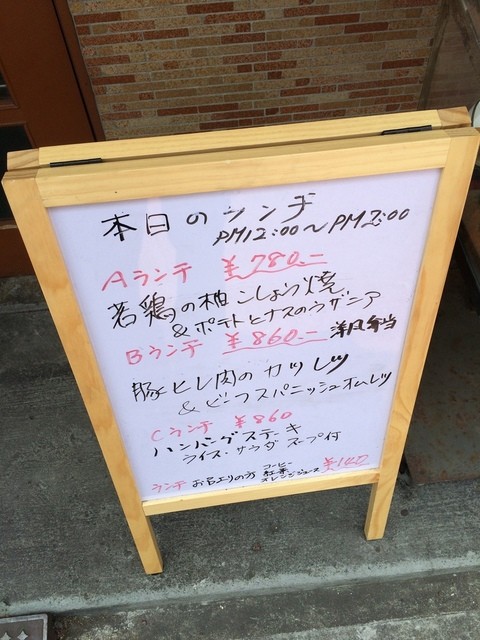 本日のランチ
PM12:00〜PM2:00
Aランチ ¥780.-
若鶏の柚こしょう焼
&ポテトとナスのラザニア
Bランチ ¥860.- 洋風弁当
豚ヒレ肉のカツレツ
&ビーフスパニッシュオムレツ
Cランチ ¥860
ハンバーグステーキ
ライス・サラダ スープ付
ランチ お召上りの方 コーヒー 紅茶 オレンジジュース ¥140